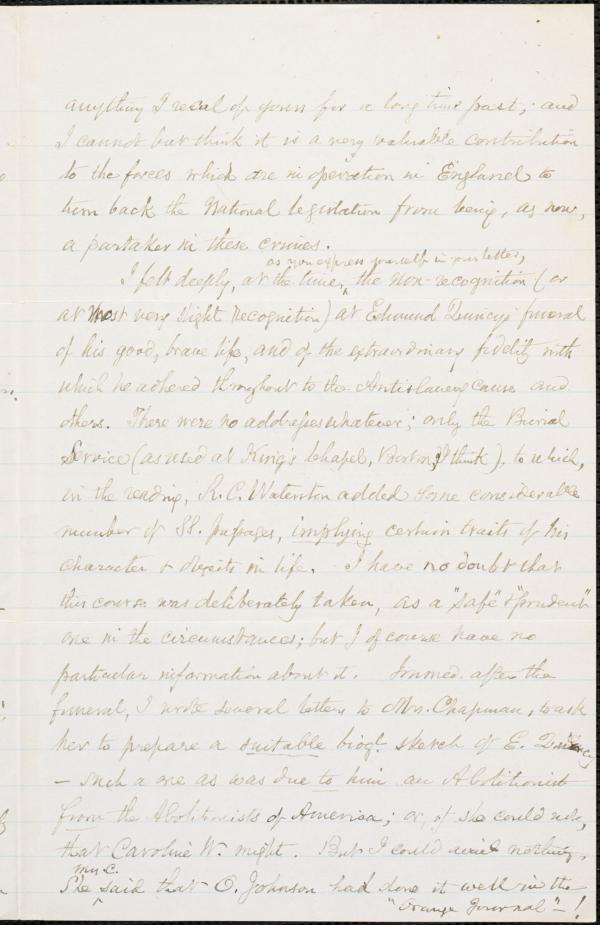 anything I recal of yours for a long time past; and
I cannot but think it is a very valuable contribution
to the forces which are in operation in England to
turn back the National legislation from being, as now,
a partaker in these crimes.
as you express yourself in your letter,
I felt deeply, at the time, ^ the non-recognition (or
at most very slight recognition) at Edmund Quincy's funeral
of his good, brave life, and of the extraordinary fidelity with
which he adhered throughout to the Antislavery cause and
others. There were no addresses whatever; only the Burial
Service (as used at King's Chapel, Boston, I think), to which,
in the reading, R. C. Waterston added some considerable
number of SS. passages, implying certain traits of his
character & objects in life. I have no doubt that
this course was deliberately taken, as a "safe" & "prudent"
one in the circumstances; but I of course have no
particular information about it. Immed. after the
funeral, I wrote several letters to Mrs. Chapman, to ask
her to prepare a suitable biogl. sketch of E. Quincy
— such a one as was due to him an Abolitionist
from the Abolitionists of America; or, if she could not,
that Caroline W. might. But I could avail nothing.
Mrs. C.
She ^ said that O. Johnson had done it well in the
"Orange Journal" — !